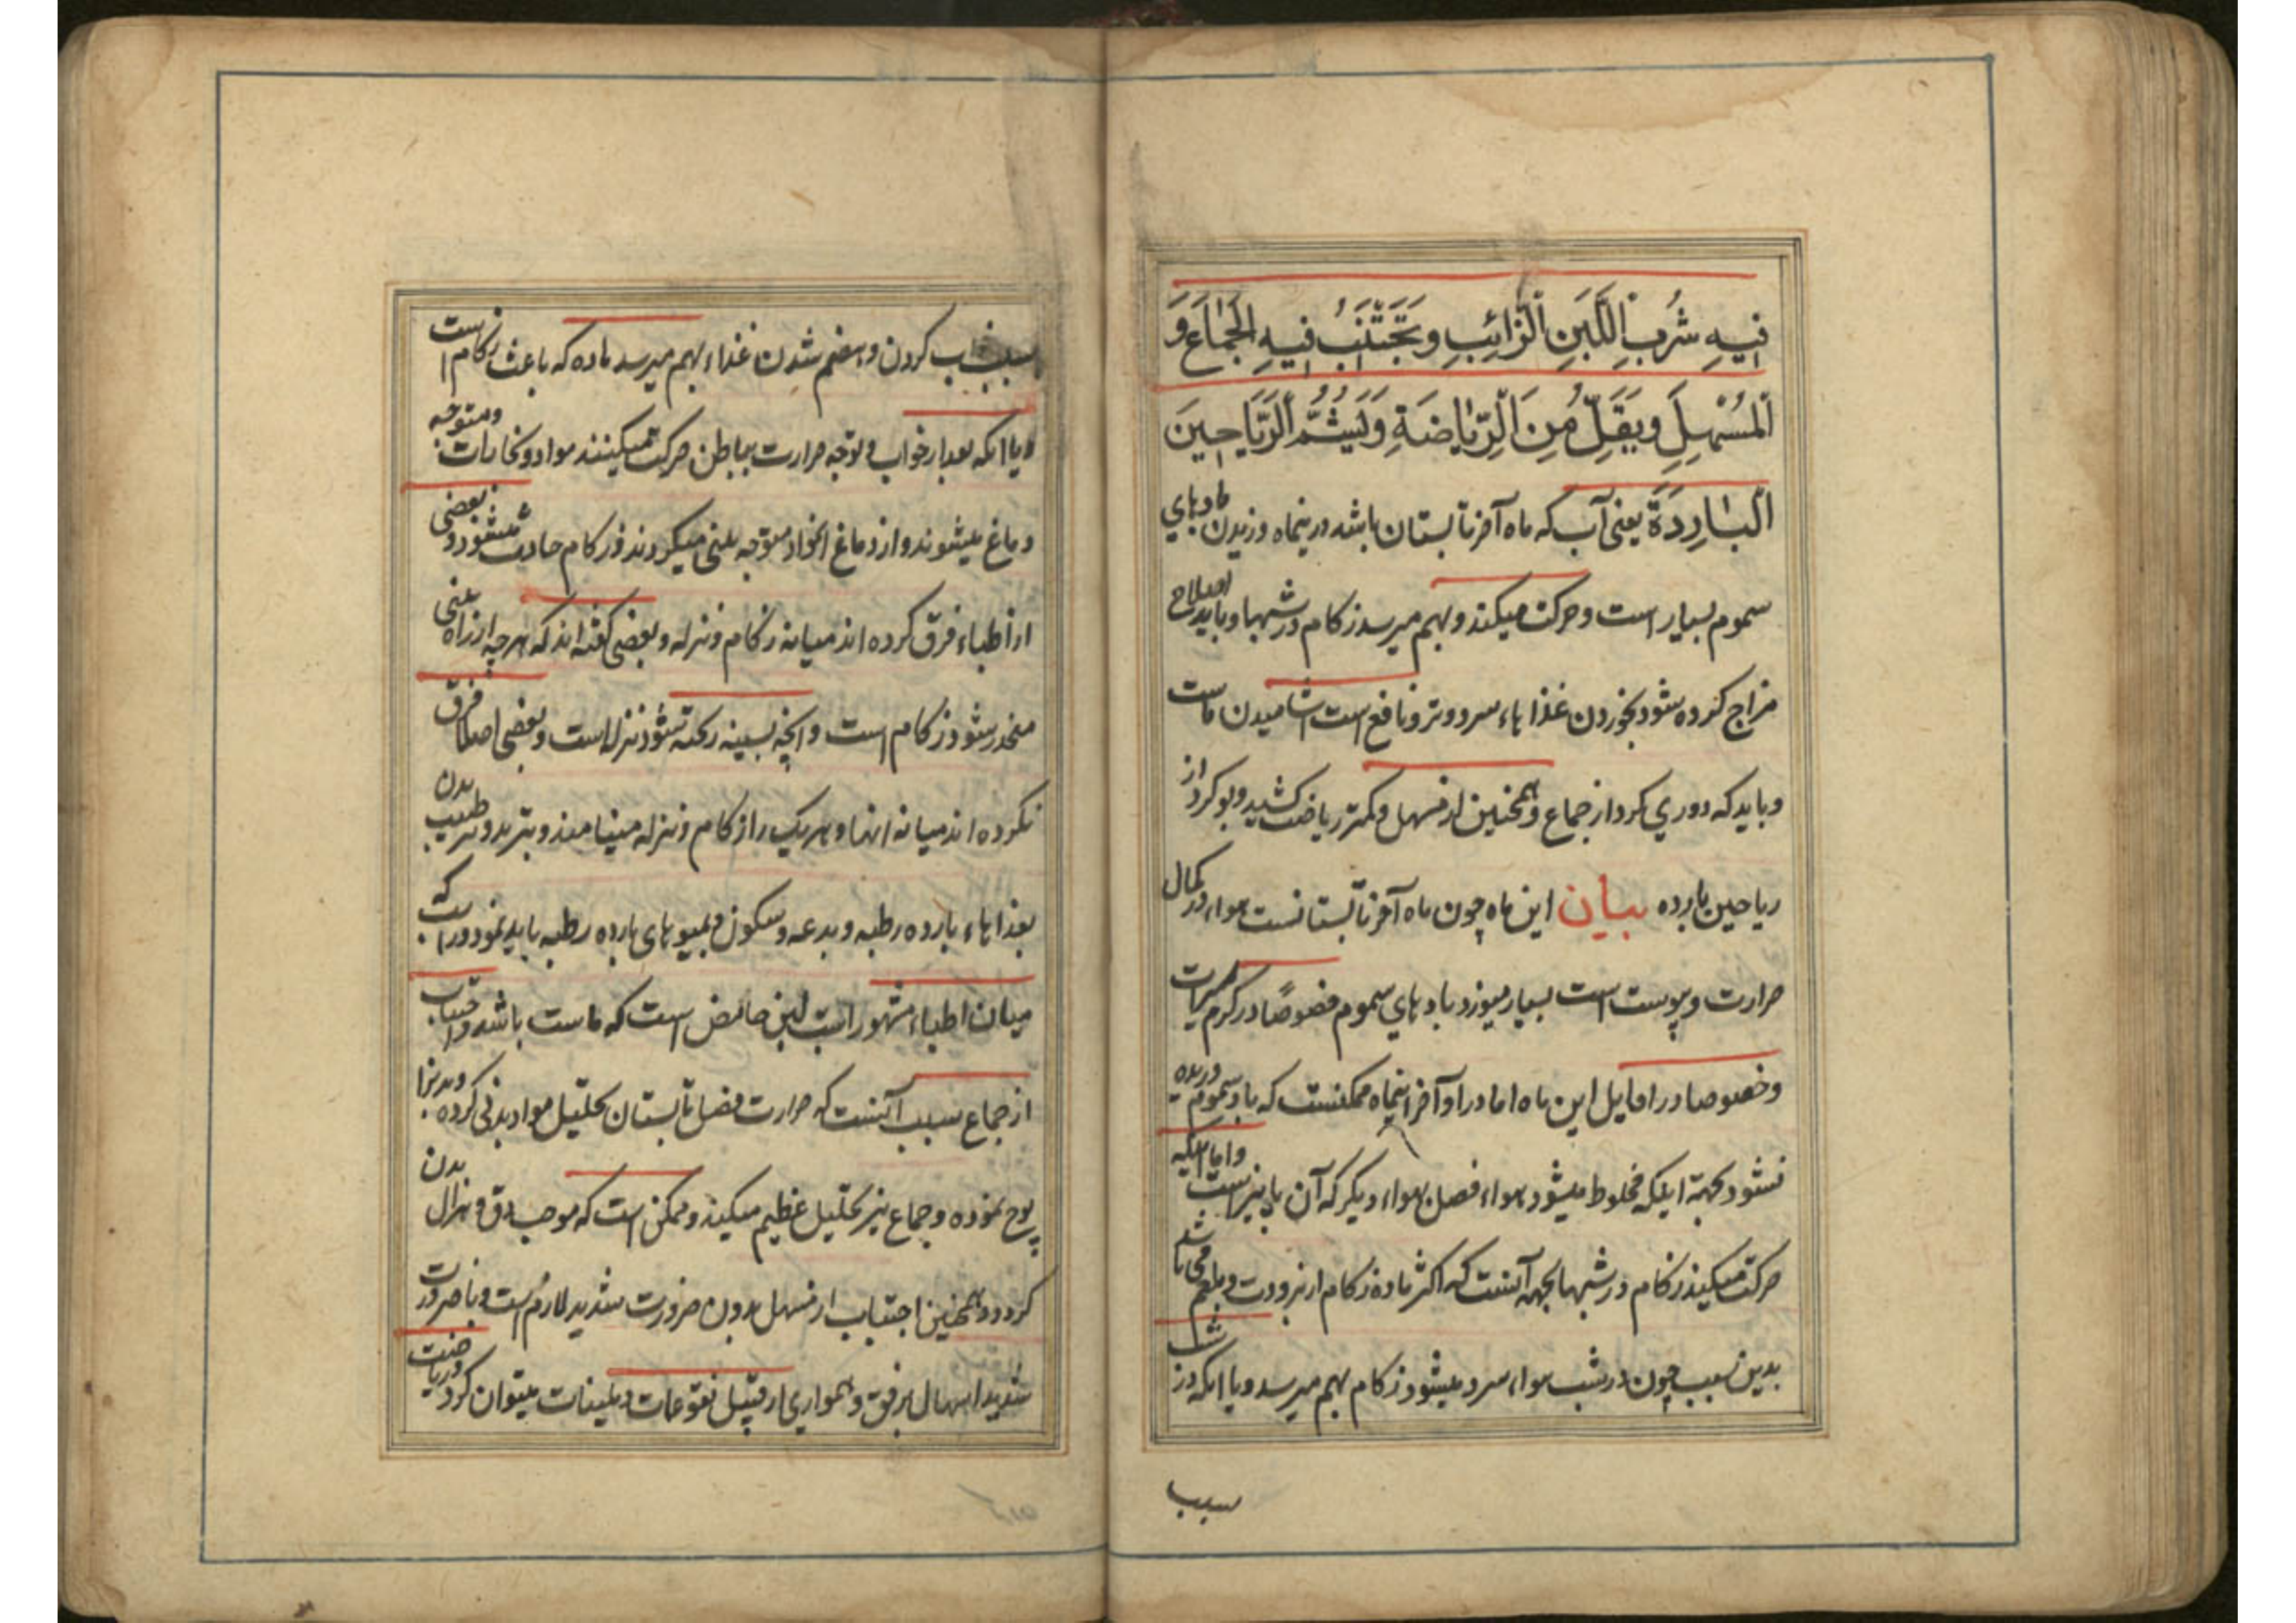 فِيهِ شُرْبِ اللَّبَنِ الرَّائِبِ وَ يَجْتَنِبُ فِيهِ الْجِمَاعَ وَ
الْمُسْهِلَ وَ يُقَلِّلُ مِنَ الرِّيَاضَةِ وَ يَشُمُّ الرَّيَاحِينَ
الْبَارِدَةَ یعنی آب که ماه آخر تابستان باشد درینماه وزیدن بادهای
سموم بسیار است و حرکت میکند و بهم میرسد زکام در شبها و باید اصلاح
مزاج کرده شود بخوردن غذاهاء سرد و تر و نافع است اشامیدن ماست
و باید که دوری کرد از جماع و همچنین از مسهل و کمتر ریاضت کشید و بو کرد از
ریاحین بارده بیان این ماه چون ماه آخر تابستانست هواء در کمال
حرارت و یبوست است بسیار میوزد بادهای سموم خصوصًا در کرم سیرات
و خصوصا در اوایل این ماه اما در اواخر اینماه ممکنست که باد سموم وزیده
نشود بجهة اینکه مخلوط میشود هواء فصل بهواء دیکر که آن پاییز است و اما اینکه
حرکت میکند زکام در شبها بجهه آنست که اکثر ماده زکام از برودت و بلغم می باشد
بدین سبب چون در شب هواء سرد میشود زکام بهم میرسد و یا اینکه در شب
سبب
بسبب خواب کردن و هضم شدن غذاء بهم میرسد ماده که باعث زکام است
و یا اینکه بعد از خواب و توجه حرارت بباطن حرکت میکنند مواد و بخارات و متوجه
دماغ میشوند و از دماغ انمواد متوجه بینی میکردند و زکام حادث میشود و بعضی
از اطباء فرق کرده اند میانه زکام و نزله و بعضی کفته اند که هرچه از راه بینی
منحدر شود زکام است و انچه بسینه ریخته شود نزله است و بعضی اصلا فرق
نکرده اند میانه انها و هر یک را زکام و نزله مینامند و تبرید و ترطیب بدن
بغذاهاء بارده رطبه و بدعه و سکون و بمیوهای بارده رطبه باید نمود و رائب که
میان اطباء مشهور است لبن حامض است که ماست باشد و اجتناب
از جماع سبب آنست که حرارت فصل تابستان تحلیل مواد بدنی کرده و بدنرا
پوچ نموده و جماع نیز تحلیل عظیم میکند و ممکن است که موجب دق و هزال بدن
کردد و همچنین اجتناب از مسهل بدون ضرورت شدید لازم است و با ضرورت
شدید اسهال برفق و همواری از قبیل نقوعات و ملینات میتوان کرد و ریاضت